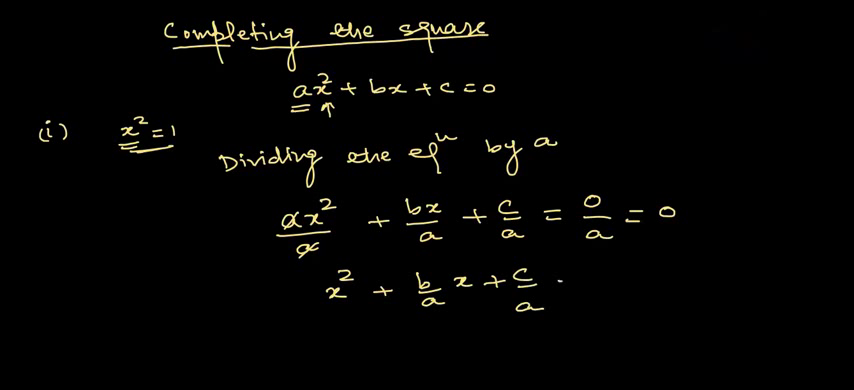 Completing the square
ax² + bx + c = 0
(i) x² = 1
Dividing the eqⁿ by a
ax²/a + bx/a + c/a = 0/a = 0
x² + b/a x + c/a